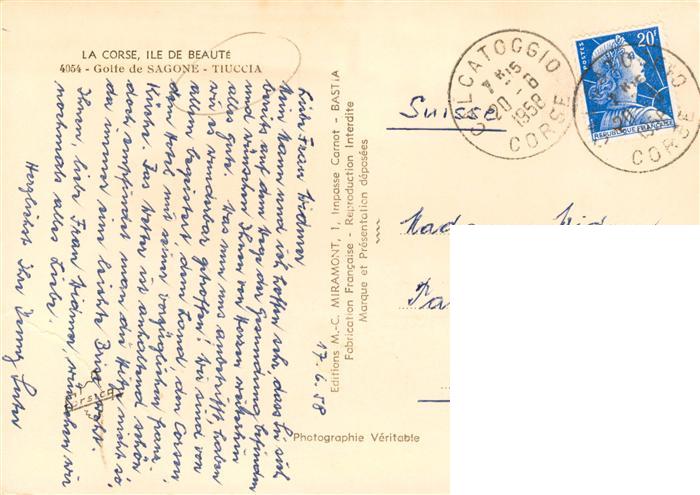 LA CORSE, ILE DE BEAUTÉ
4054 - Golfe de SAGONE - TIUCCIA
17.6.58
Liebe Frau Widmer
Mein Mann und ich hoffen sehr, dass Sie sich
bereits auf dem Wege der Gesundung befinden
und wünschen Ihnen von Herzen weiterhin
alles Gute. Was nun uns anbetrifft, haben
wir es wunderbar getroffen! Wir sind von
allem begeistert, dem Land, den Corsen
dem Hotel mit seiner vorzüglichen franz.
Küche. Das Wetter ist anhaltend schön
doch empfindet man die Hitze nicht so,
da immer eine leichte Brise weht.
Ihnen, liebe Frau Widmer, wünschen wir
nochmals alles Liebe.
Herzlichst Ihre
Corsica
Editions M.-C. MIRAMONT, 1, Impasse Carnot - BASTIA
Fabrication Française - Reproduction Interdite
Marque et Présentation déposées
Photographie Véritable
CALCATOGGIO
7 H 15
20 - 6
1958
CORSE
20F
REPUBLIQUE FRANÇAISE
CORSE
Suisse